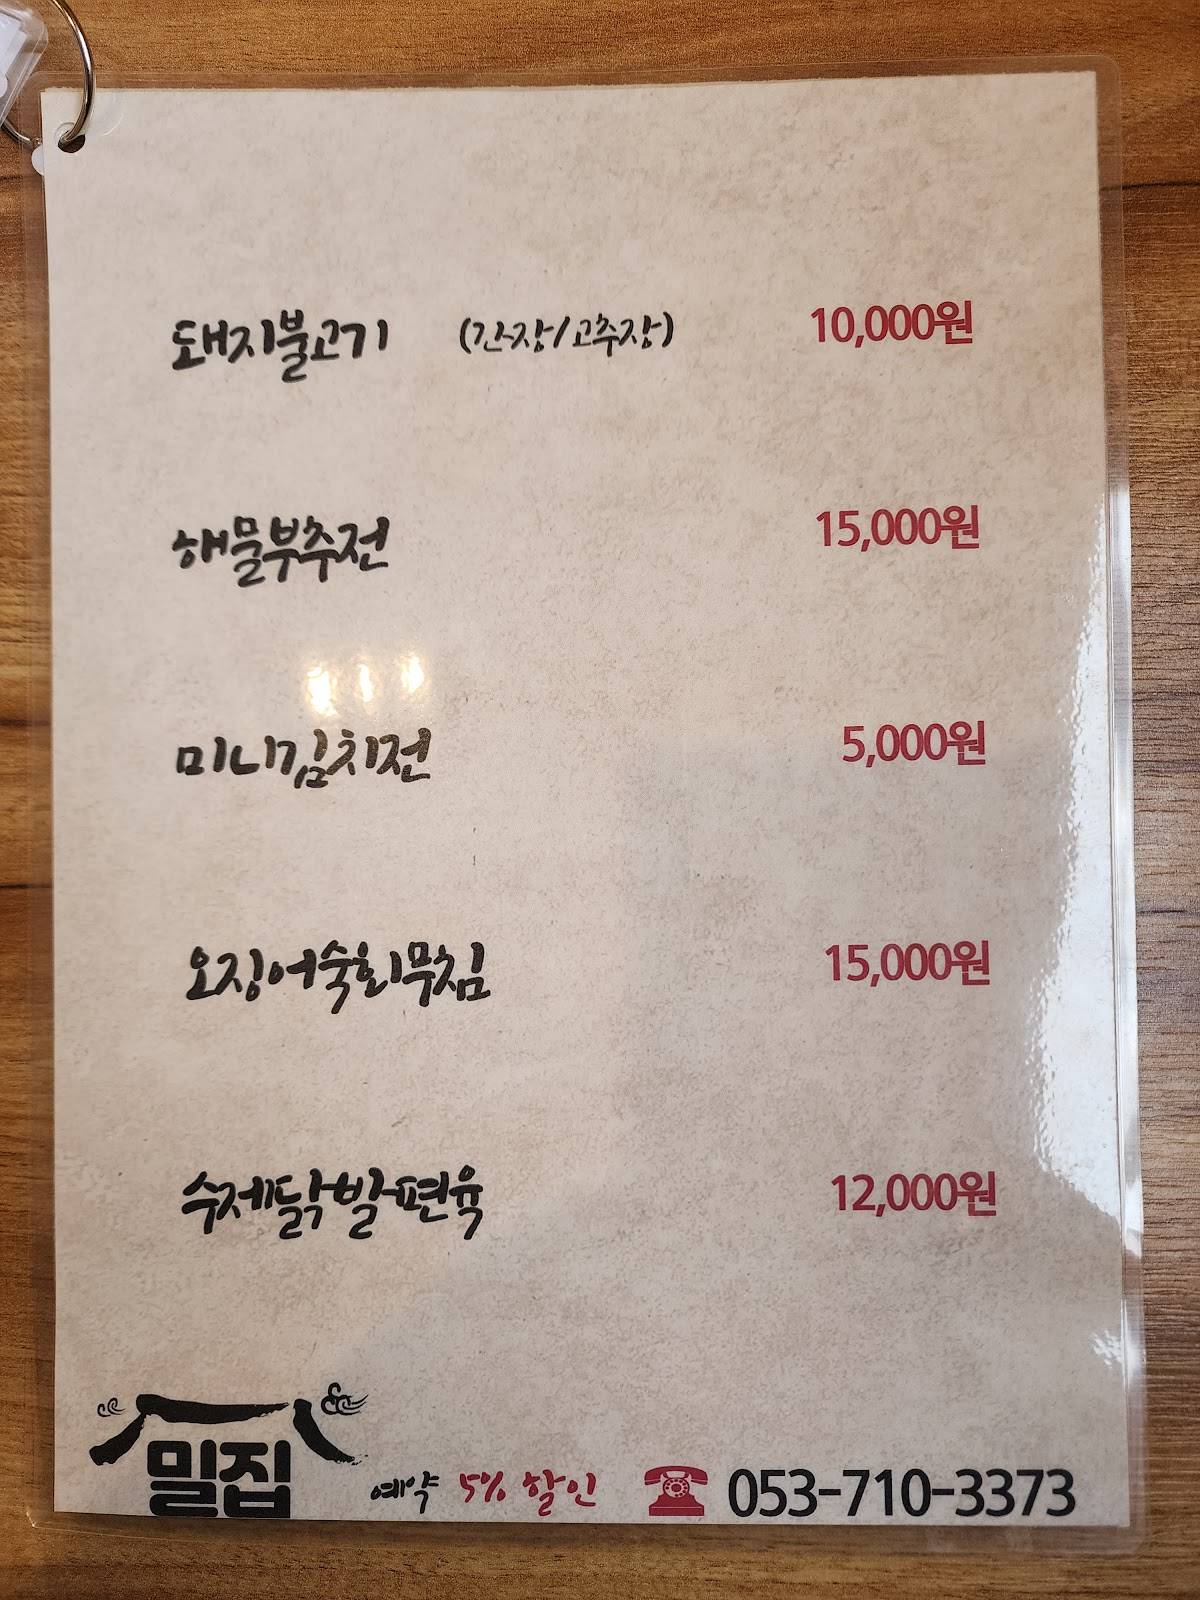 돼지불고기 (간장/고추장) 10,000원
해물부추전 15,000원
미니김치전 5,000원
오징어숙회무침 15,000원
수제닭발편육 12,000원
밀집 예약 5% 할인 053-710-3373